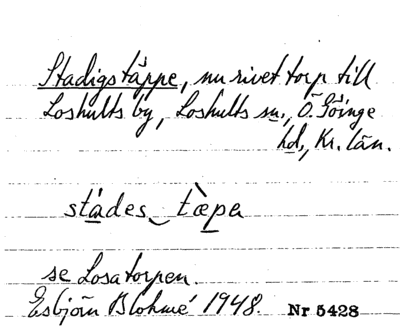 Stadigstäppe, nu rivet torp till
Loshults by, Loshults sn., Ö. Göinge
hd., Kr. län.
stades tæpa
se Losatorpen.
Esbjörn Blohmé 1948. Nr 5428